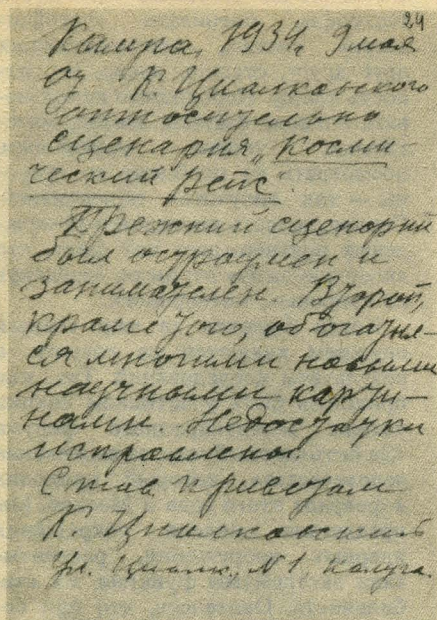 24
Калуга, 1934, 9 мая
от К. Циолковского
относительно
сценария „Косми-
ческий рейс“.
Прежний сценарий
был остроумен и
занимателен. Второй,
кроме того, обогатил-
ся многими новыми
научными карти-
нами. Недостатки
исправлены.
С тов. приветом
К. Циолковский
Ул. Циолк., № 1, Калуга.